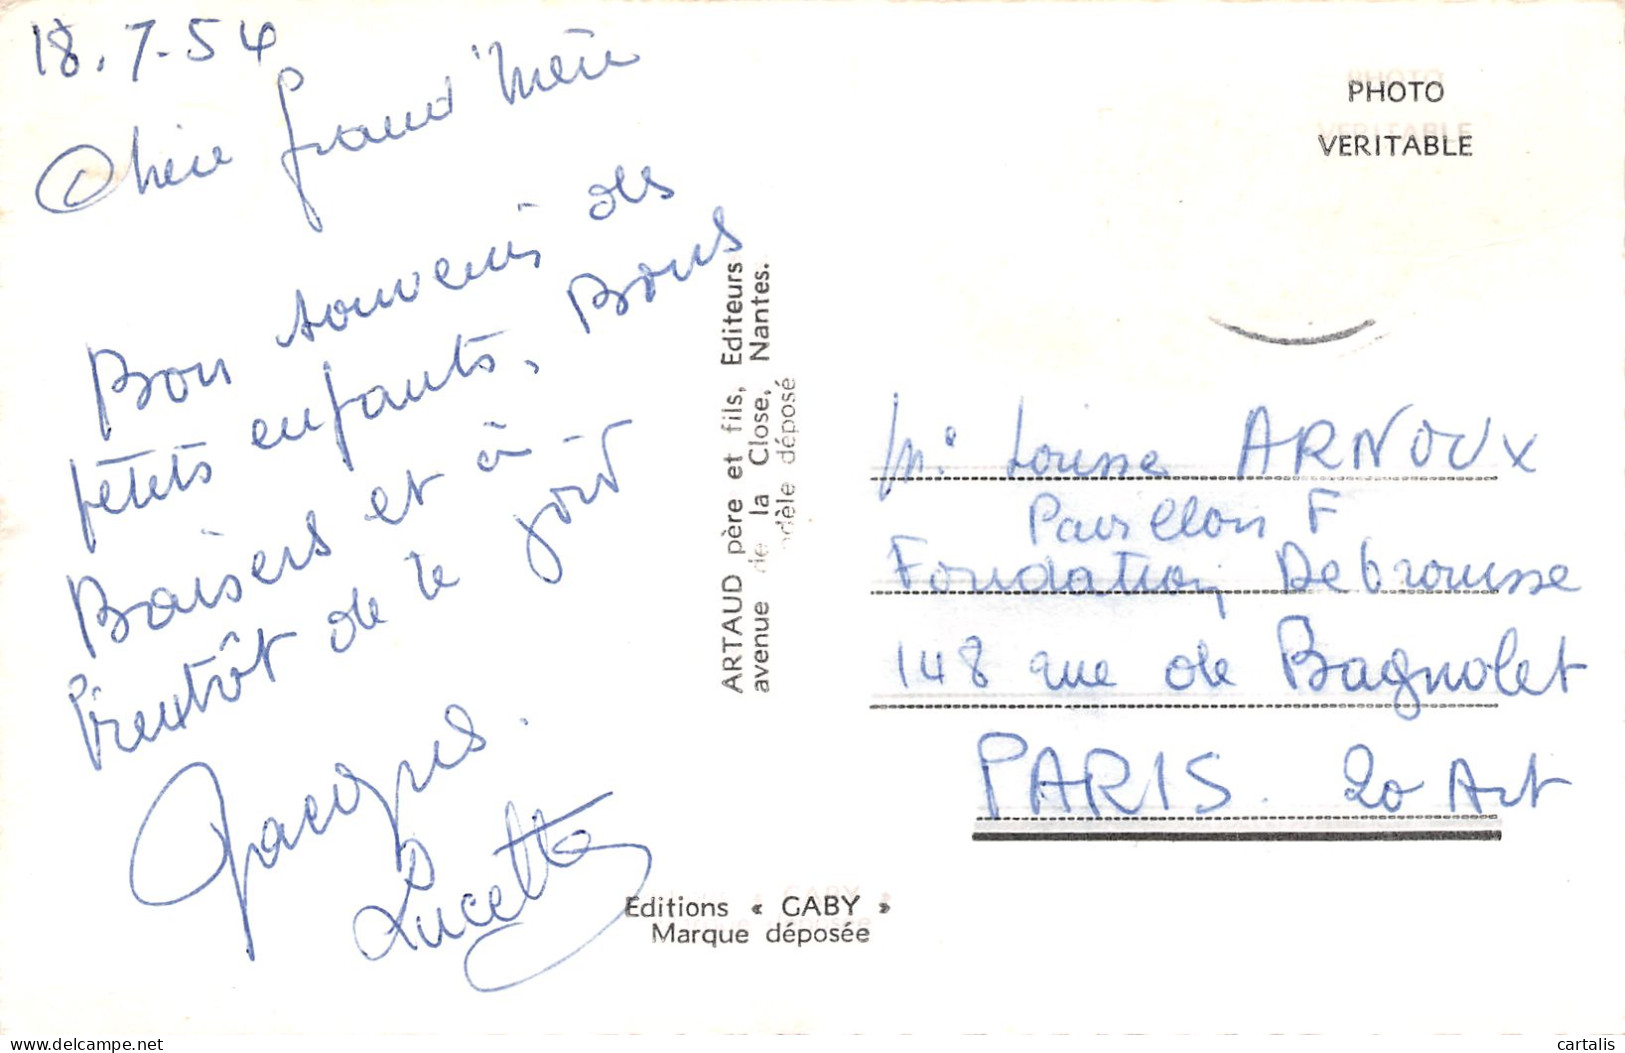 18.7-54
Chère grand'Mère
Bon souvenir des
petits enfants, Bons
Baisers et à
bientôt de te voir
Jacques.
Lucette
ARTAUD père et fils, Editeurs
avenue de la Close, Nantes.
modèle déposé
Editions « GABY »
Marque déposée
PHOTO
VERITABLE
Me Louise ARNOUX
Pavillon F
Fondation Debrousse
148 rue de Bagnolet
PARIS. 20 Art
delcampe.net
cartalis